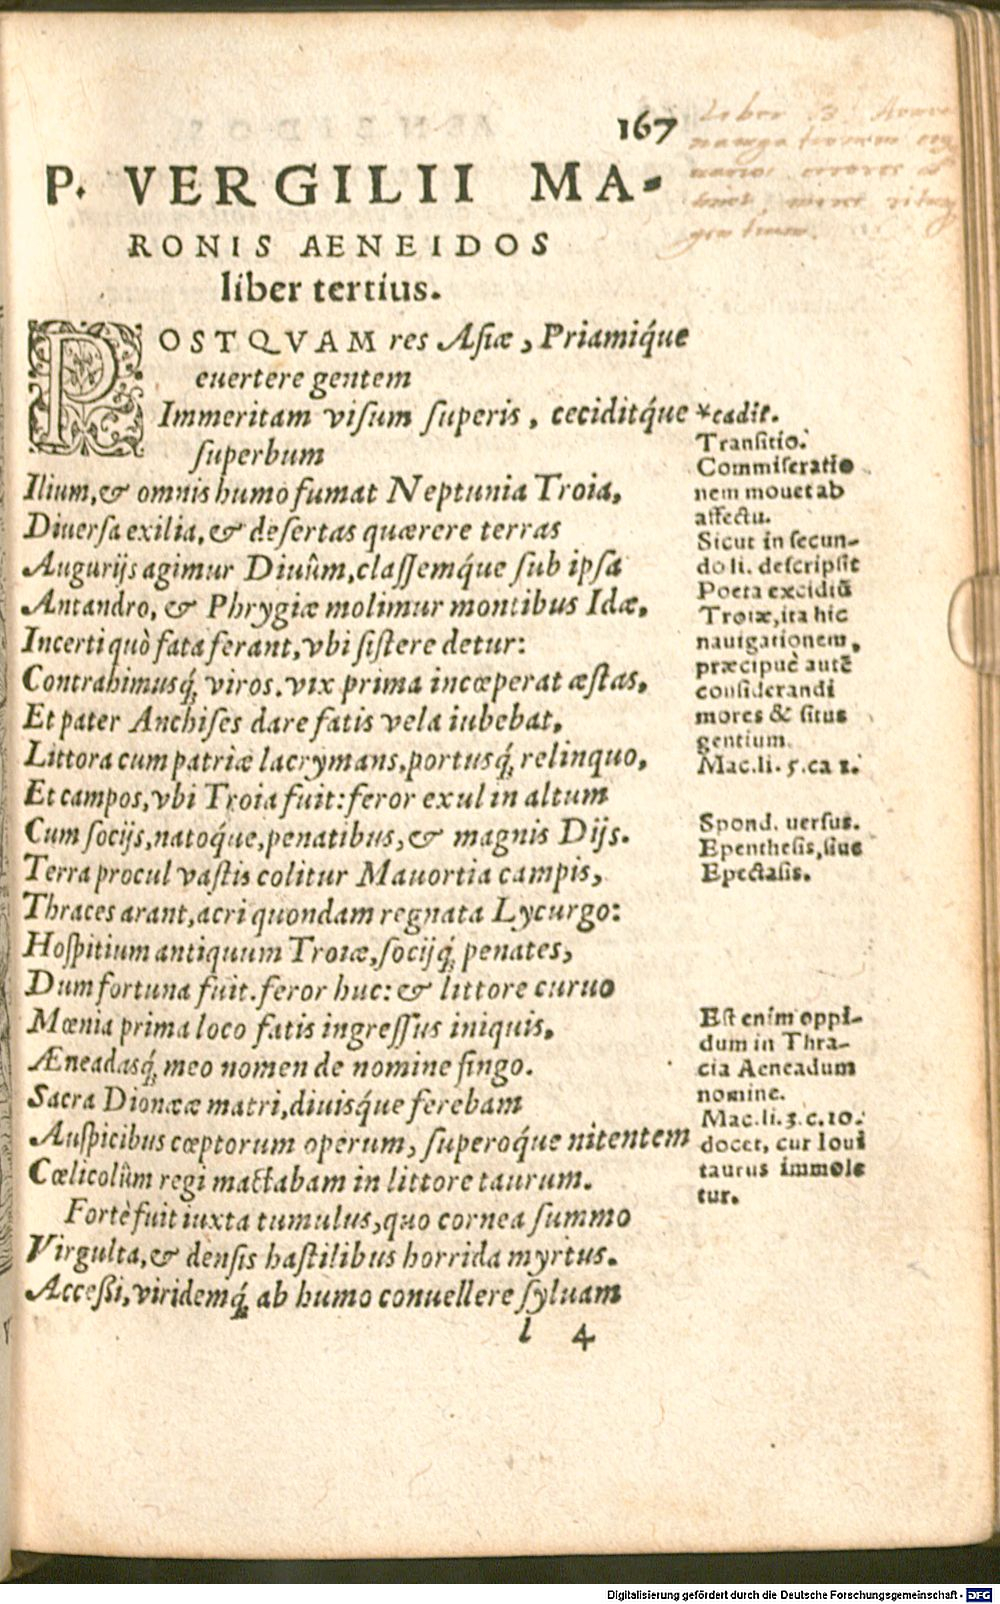 167
P. VERGILII MA-
RONIS AENEIDOS
liber tertius.
POSTQVAM res Asiæ, Priamiq́ue
euertere gentem
Immeritam visum superis, ceciditq́ue
superbum
Ilium, & omnis humo fumat Neptunia Troia,
Diuersa exilia, & desertas quærere terras
Augurijs agimur Diuûm, classemq́ue sub ipsa
Antandro, & Phrygiæ molimur montibus Idæ,
Incerti quò fata ferant, vbi sistere detur:
Contrahimusq́; viros. vix prima incœperat æstas,
Et pater Anchises dare fatis vela iubebat,
Littora cum patriæ lacrymans, portusq́; relinquo,
Et campos, vbi Troia fuit: feror exul in altum
Cum socijs, natoq́ue, penatibus, & magnis Dijs.
Terra procul vastis colitur Mauortia campis,
Thraces arant, acri quondam regnata Lycurgo:
Hospitium antiquum Troiæ, socijq́; penates,
Dum fortuna fuit. feror huc: & littore curuo
Mœnia prima loco fatis ingressus iniquis,
Æneadasq́; meo nomen de nomine fingo.
Sacra Dionææ matri, diuisq́ue ferebam
Auspicibus cœptorum operum, superoq́ue nitentem
Cœlicolûm regi mactabam in littore taurum.
Fortè fuit iuxta tumulus, quo cornea summo
Virgulta, & densis hastilibus horrida myrtus.
Accessi, viridemq́; ab humo conuellere syluam
l 4
*cadit.
Transitio.
Commiseratio
nem mouet ab
affectu.
Sicut in secun-
do li. descripsit
Poeta excidiũ
Troiæ, ita hic
nauigationem,
præcipuè autẽ
considerandi
mores & situs
gentium.
Mac. li. 5. ca 1.
Spond. uersus.
Epenthesis, siue
Epectasis.
Est enim oppi-
dum in Thra-
cia Aeneadum
nomine.
Mac. li. 3. c. 10.
docet, cur Ioui
taurus immole
tur.
Liber 3
Digitalisierung gefördert durch die Deutsche Forschungsgemeinschaft - DFG